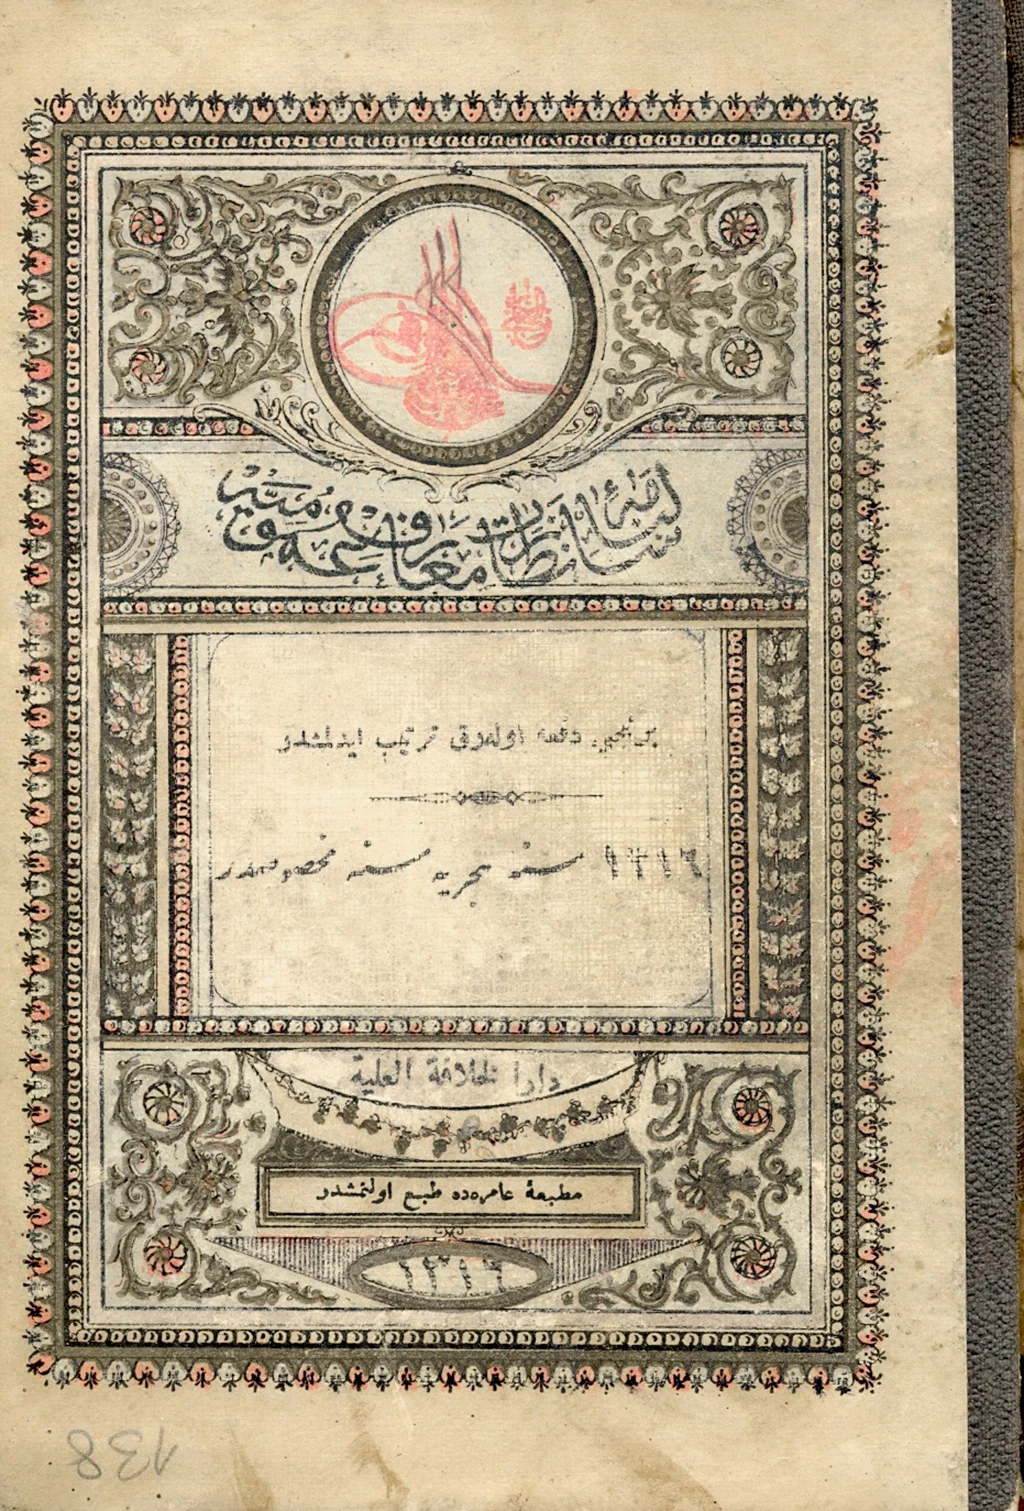 سالنامهٔ نظارت معارف عمومیه
برنجی دفعه اوله‌رق ترتیب ایدلمشدر
١٣١٦ سنهٔ هجریه سنه مخصوصدر
دارالخلافة العلیة
مطبعهٔ عامره‌ده طبع اولنمشدر
١٣١٦
138